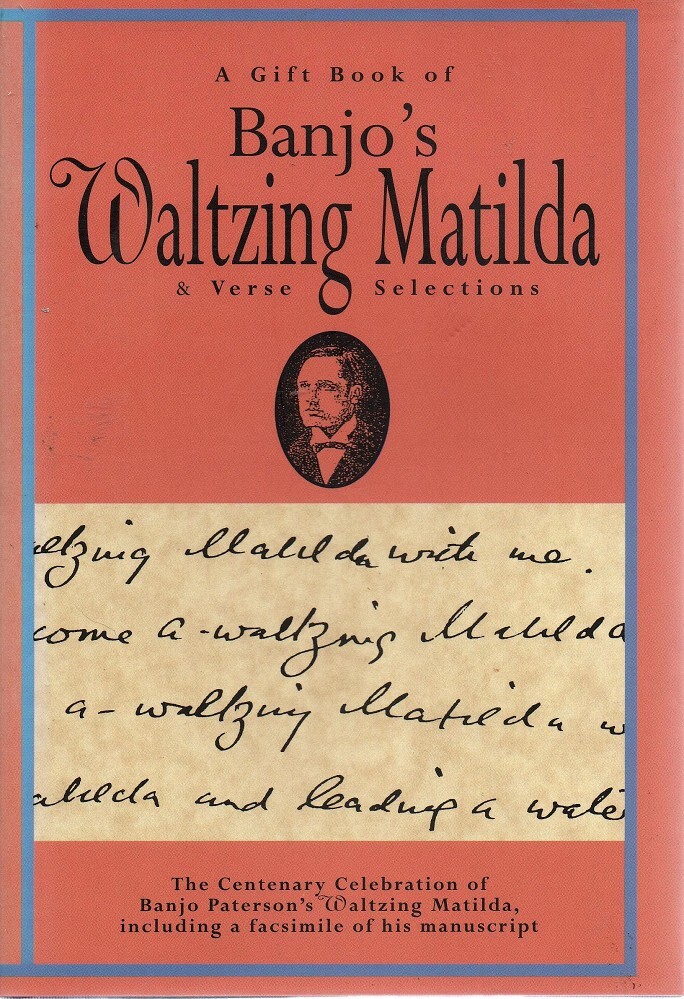 A Gift Book of
Banjo's
Waltzing Matilda
& Verse Selections
altzing Matilda with me.
come a-waltzing Matilda
a-waltzing Matilda w
atilda and leading a wate
The Centenary Celebration of
Banjo Paterson's Waltzing Matilda,
including a facsimile of his manuscript